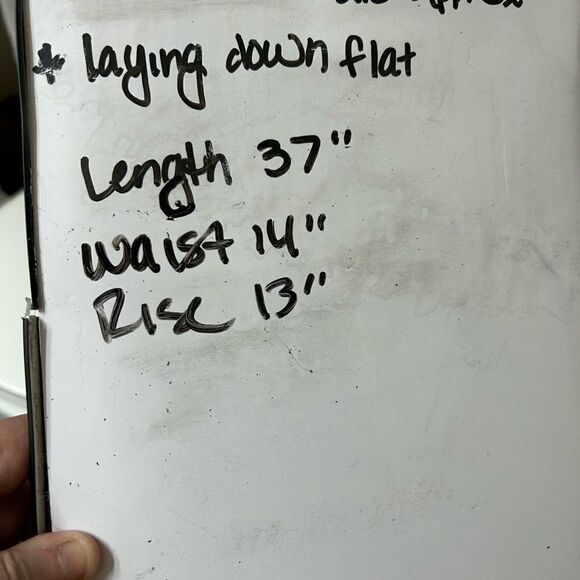 * laying down flat
Length 37"
Waist 14"
Rise 13"